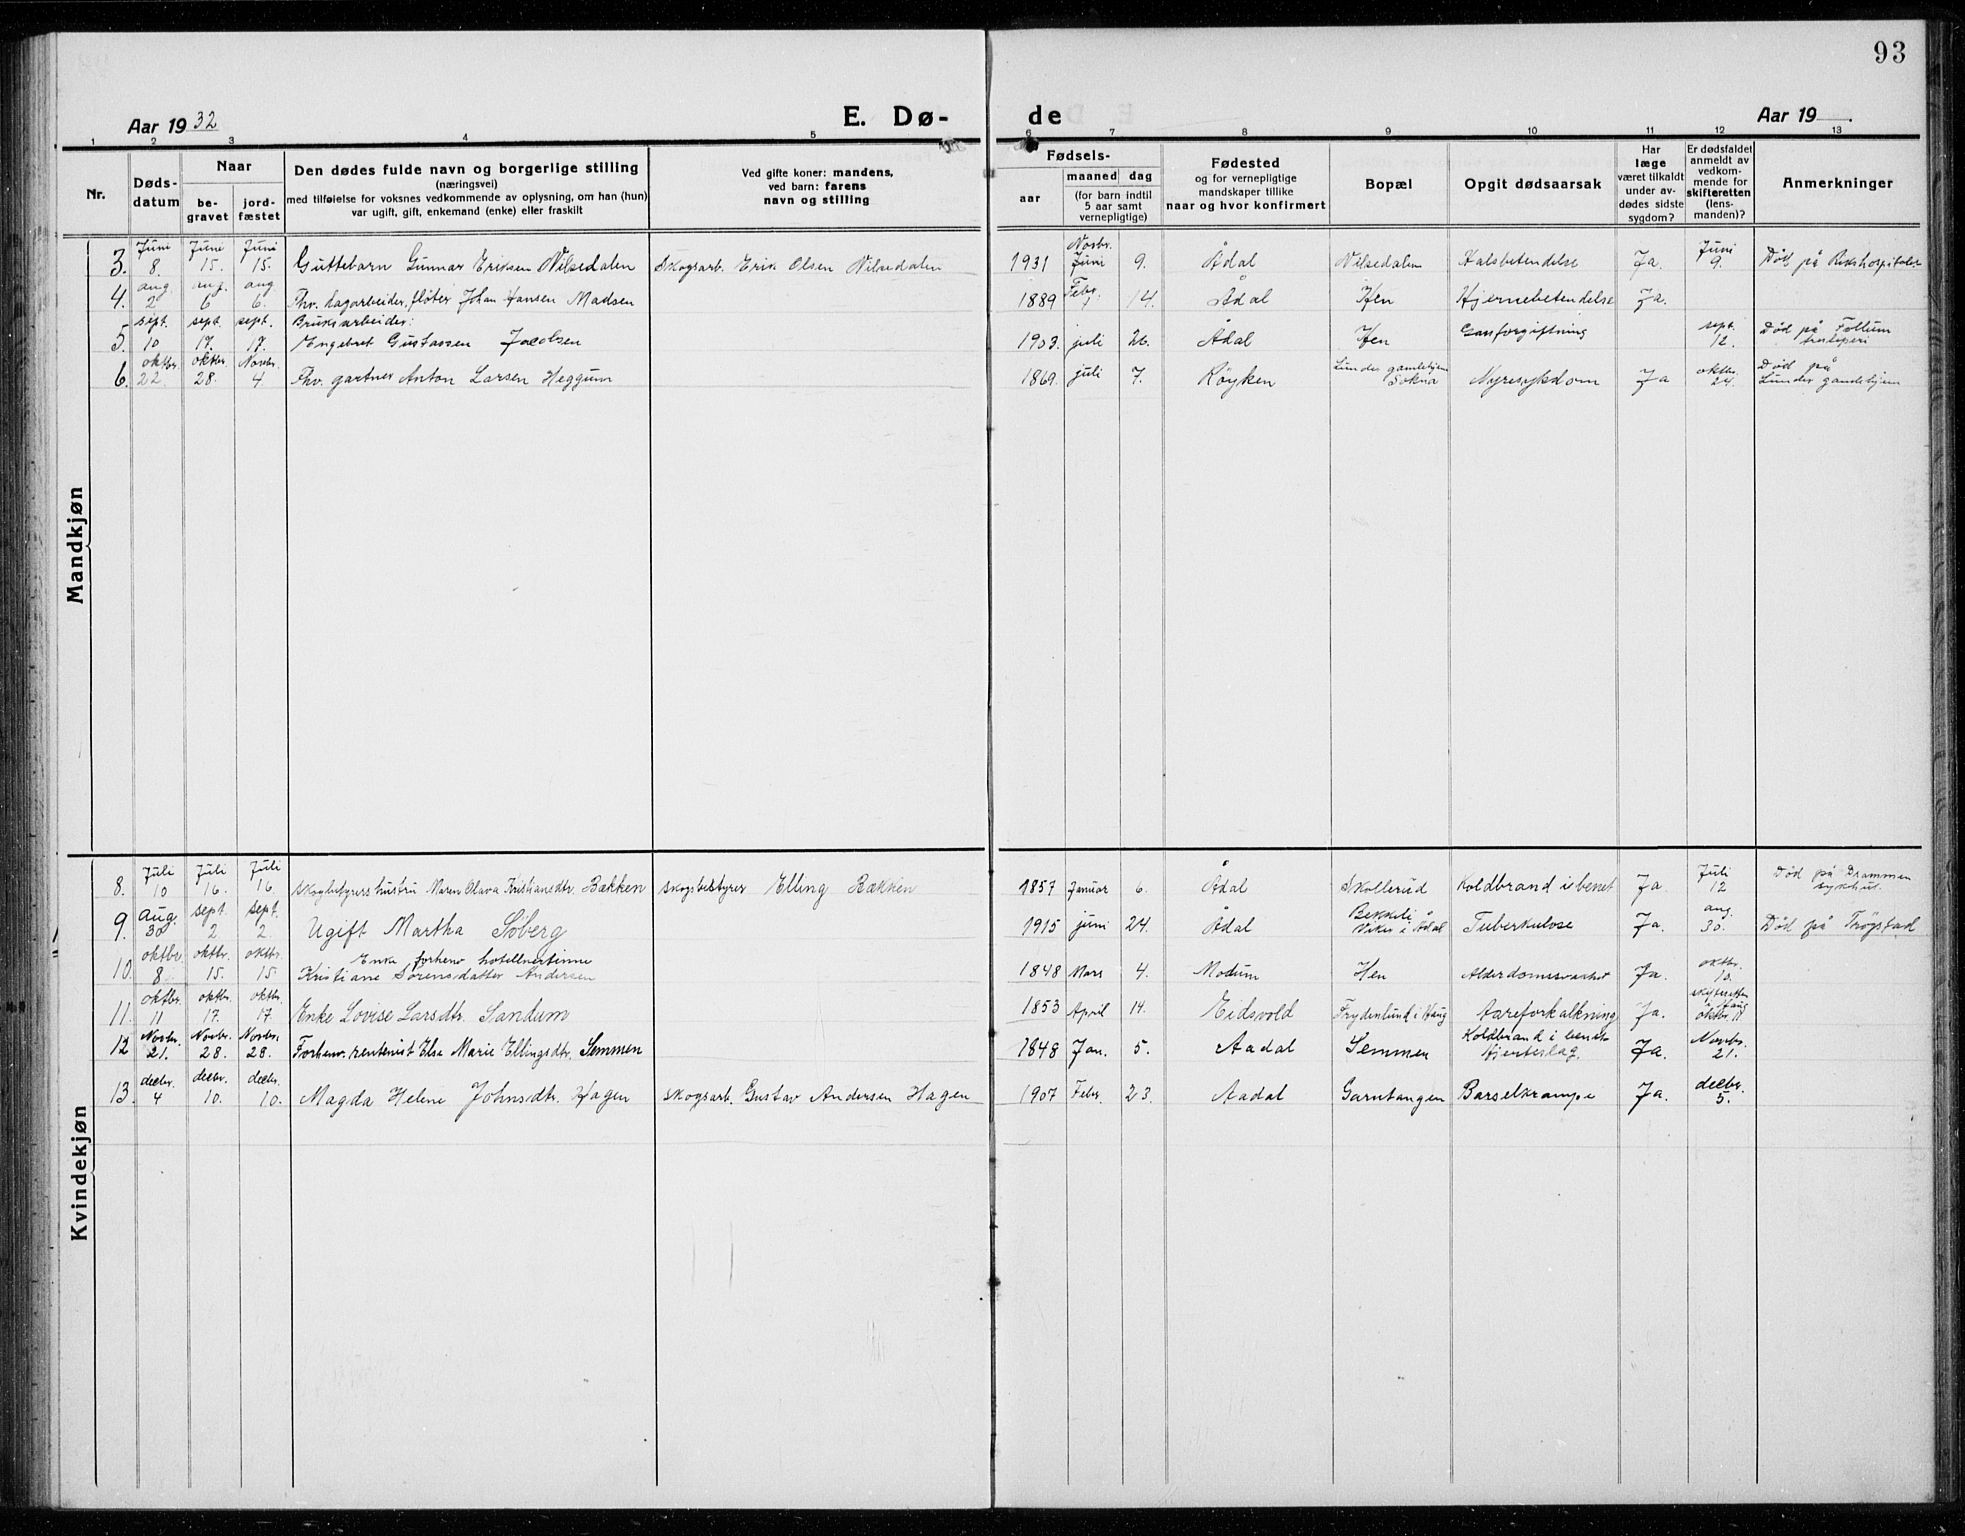 93
Aar 1932 E. Dø- de Aar 19
1 2 3 4 5 6 7 8 9 10 11 12 13
Nr.
Døds-
datum
Naar
be-
gravet
jord-
fæstet
Den dødes fulde navn og borgerlige stilling
(næringsvei)
med tilføielse for voksnes vedkommende av oplysning, om han (hun)
var ugift, gift, enkemand (enke) eller fraskilt
Ved gifte koner: mandens,
ved barn: farens
navn og stilling
Fødsels-
aar
maaned dag
(for barn indtil
5 aar samt
vernepligtige)
Fødested
og for vernepligtige
mandskaper tillike
naar og hvor konfirmert
Bopæl
Opgit dødsaarsak
Har
læge
været tilkaldt
under av-
dødes sidste
sygdom?
Er dødsfaldet
anmeldt av
vedkom-
mende for
skifteretten
(lens-
manden)?
Anmerkninger
Mandkjøn
Juni Juni Juni Novbr. Juni
3. 8. 15. 15. Guttebarn Gunnar Eriksen Vilsedalen Skogsarb. Erik Olsen Vilsedalen 1931 Juni 9. Ådal Vilsedalen Halsbetendelse Ja. 9. Död på Rikshospitalet
aug. aug. aug Febr.
4. 2 6 6. Fhv. lagarbeider, fløter Johan Hansen Madsen 1889 14. Ådal Hen Hjernebetendelse Ja.
sept. sept. sept. Bruksarbeider: sept. Død på Follum
5. 10 17. 17. Engebret Gustavsen Jacobsen 1903. juli 26. Ådal Hen Gasforgiftning 12.
oktbr. oktbr. Novbr. Lunder gamlehjem oktbr. Død på
6. 22. 28. 4 Fhv. gartner Anton Larsen Heggum 1869. juli 7. Röyken Sokna Nyresykdom Ja 24. Lunder gamlehjem
Kvindekjøn
Juli Juli Juli Juli Död på Drammen
8. 10 16. 16. Skogbestyrers hustru Maren Olava Kristiansdtr. Bækken Skogsbestyrer Elling Bækken 1857 Januar 6. Ådal Skollerud Koldbrand i benet Ja. 12 sykehus.
Aug. sept. sept. Bekkeli aug.
9. 30 2. 2. Ugift Martha Söberg 1915 juni 24. Ådal Viker i Ådal Tuberkulose Ja. 30. Död på Trögstad
oktbr oktbr. oktbr. Enke forhenv hotellvertinne oktbr.
10. 8. 15. 15. Kristiane Sörensdatter Andersen 1848 Mars 4. Modum Hen Alderdomssvakhet Ja. 10.
oktbr. oktbr. oktbr. skifteretten i Haug
11. 11 17. 17. Enke Lovise Larsdtr. Sandum 1853 April 14. Eidsvold Frydenlund i Haug Aareforkalkning Ja. oktbr. 11
Novbr. Novbr. Novbr. Koldbrand i benet Novbr.
12 21. 28. 28. Forhenv. rentenist Else Marie Ellingsdtr. Semmen 1848 Jan. 5. Aadal Semmen Hjerteslag. Ja. 21.
decbr. decbr. decbr. decbr.
13. 4 10. 10. Magda Helene Johnsdtr. Hagen Skogsarb. Gustav Andersen Hagen 1907 Febr. 23. Aadal Garntangen Barselkrampe Ja. 5.